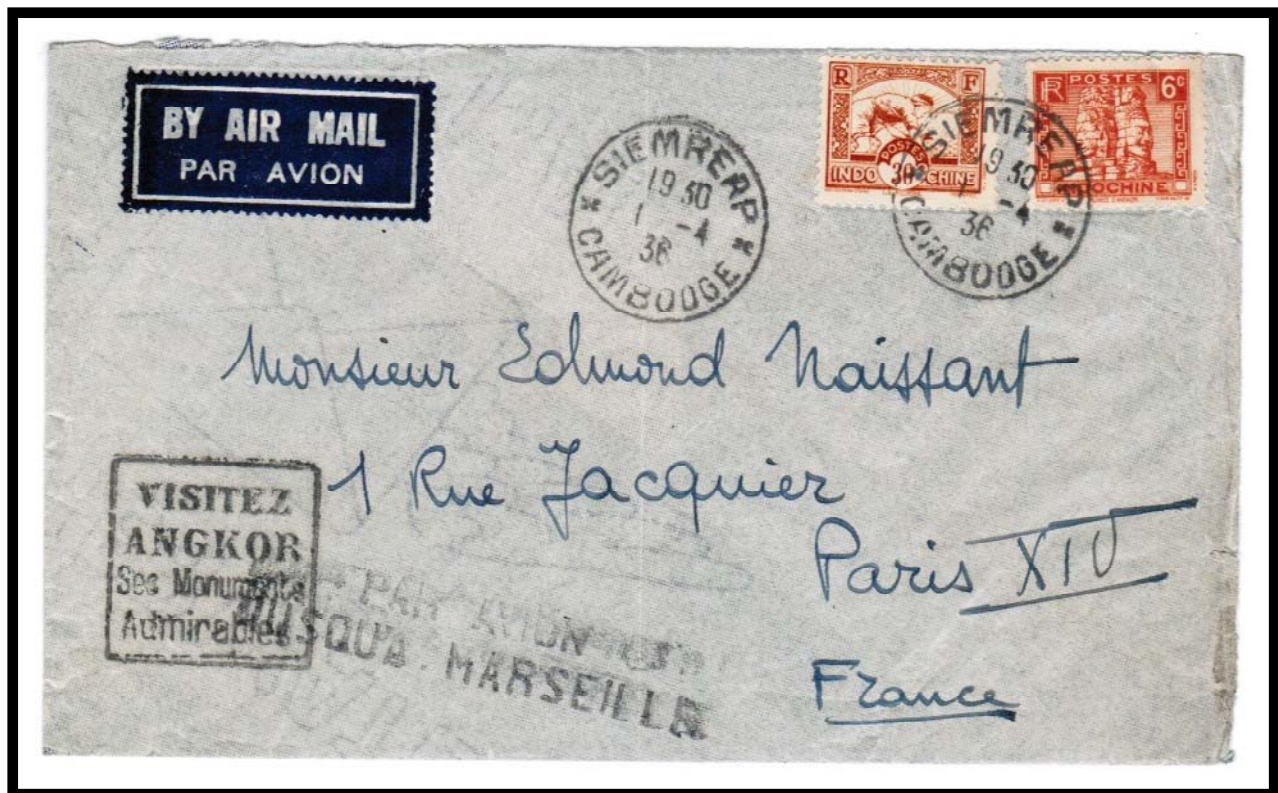 BY AIR MAIL
PAR AVION
SIEMREAP
19 30
1 -4
36
CAMBODGE
R F
POSTES
30
INDOCHINE
RF POSTES 6c
INDOCHINE
SIEMREAP
19 30
1 -4
36
CAMBODGE
Monsieur Edmond Naissant
1 Rue Jacquier
Paris XIV
France
VISITEZ
ANGKOR
Ses Monuments
Admirables
PAR AVION
JUSQU'A MARSEILLE